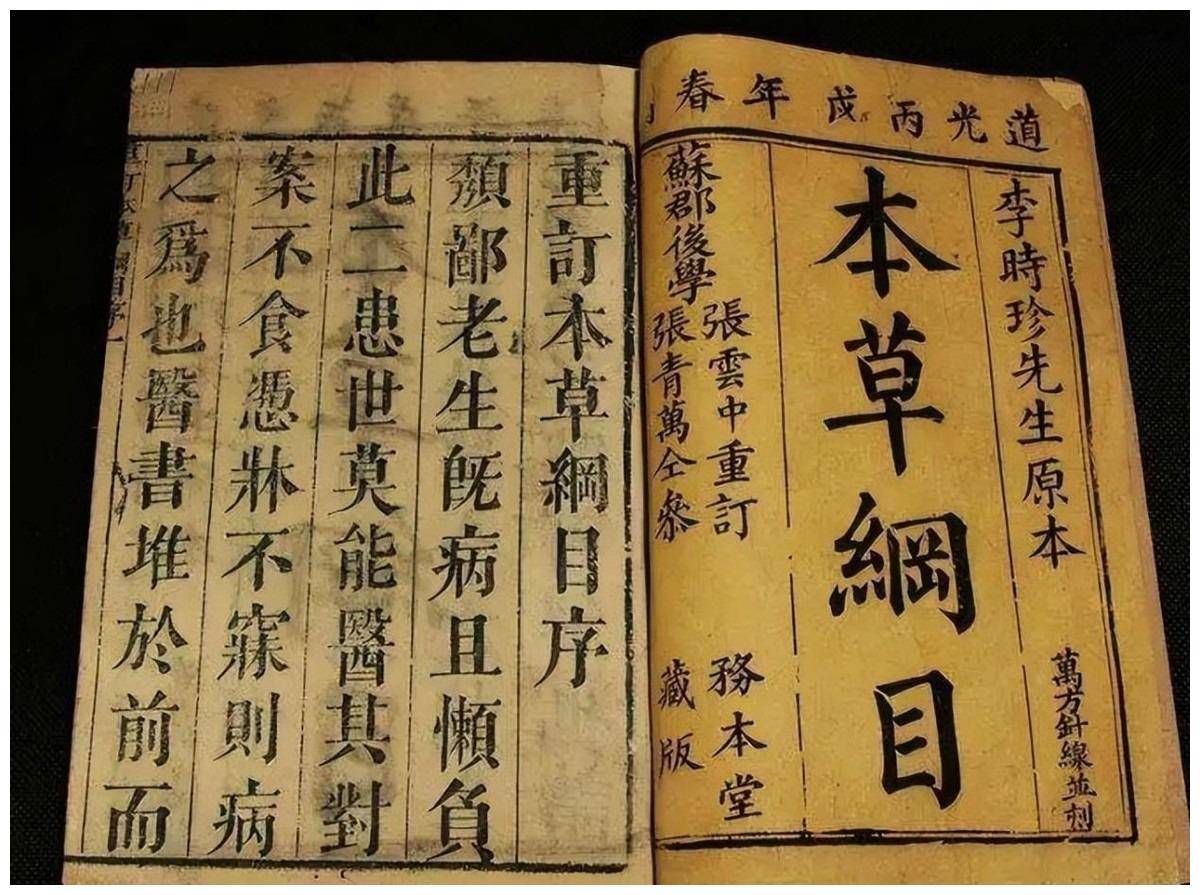 道光丙戌年春
李時珍先生原本
萬方針線並刻
本草綱目
蘇郡後學
張雲中重訂
張青萬仝參
務本堂
藏版
重訂本草綱目序
頽鄙老生既病且懶負
此二患世莫能醫其對
案不食憑牀不寐則病
之爲也醫書堆於前而